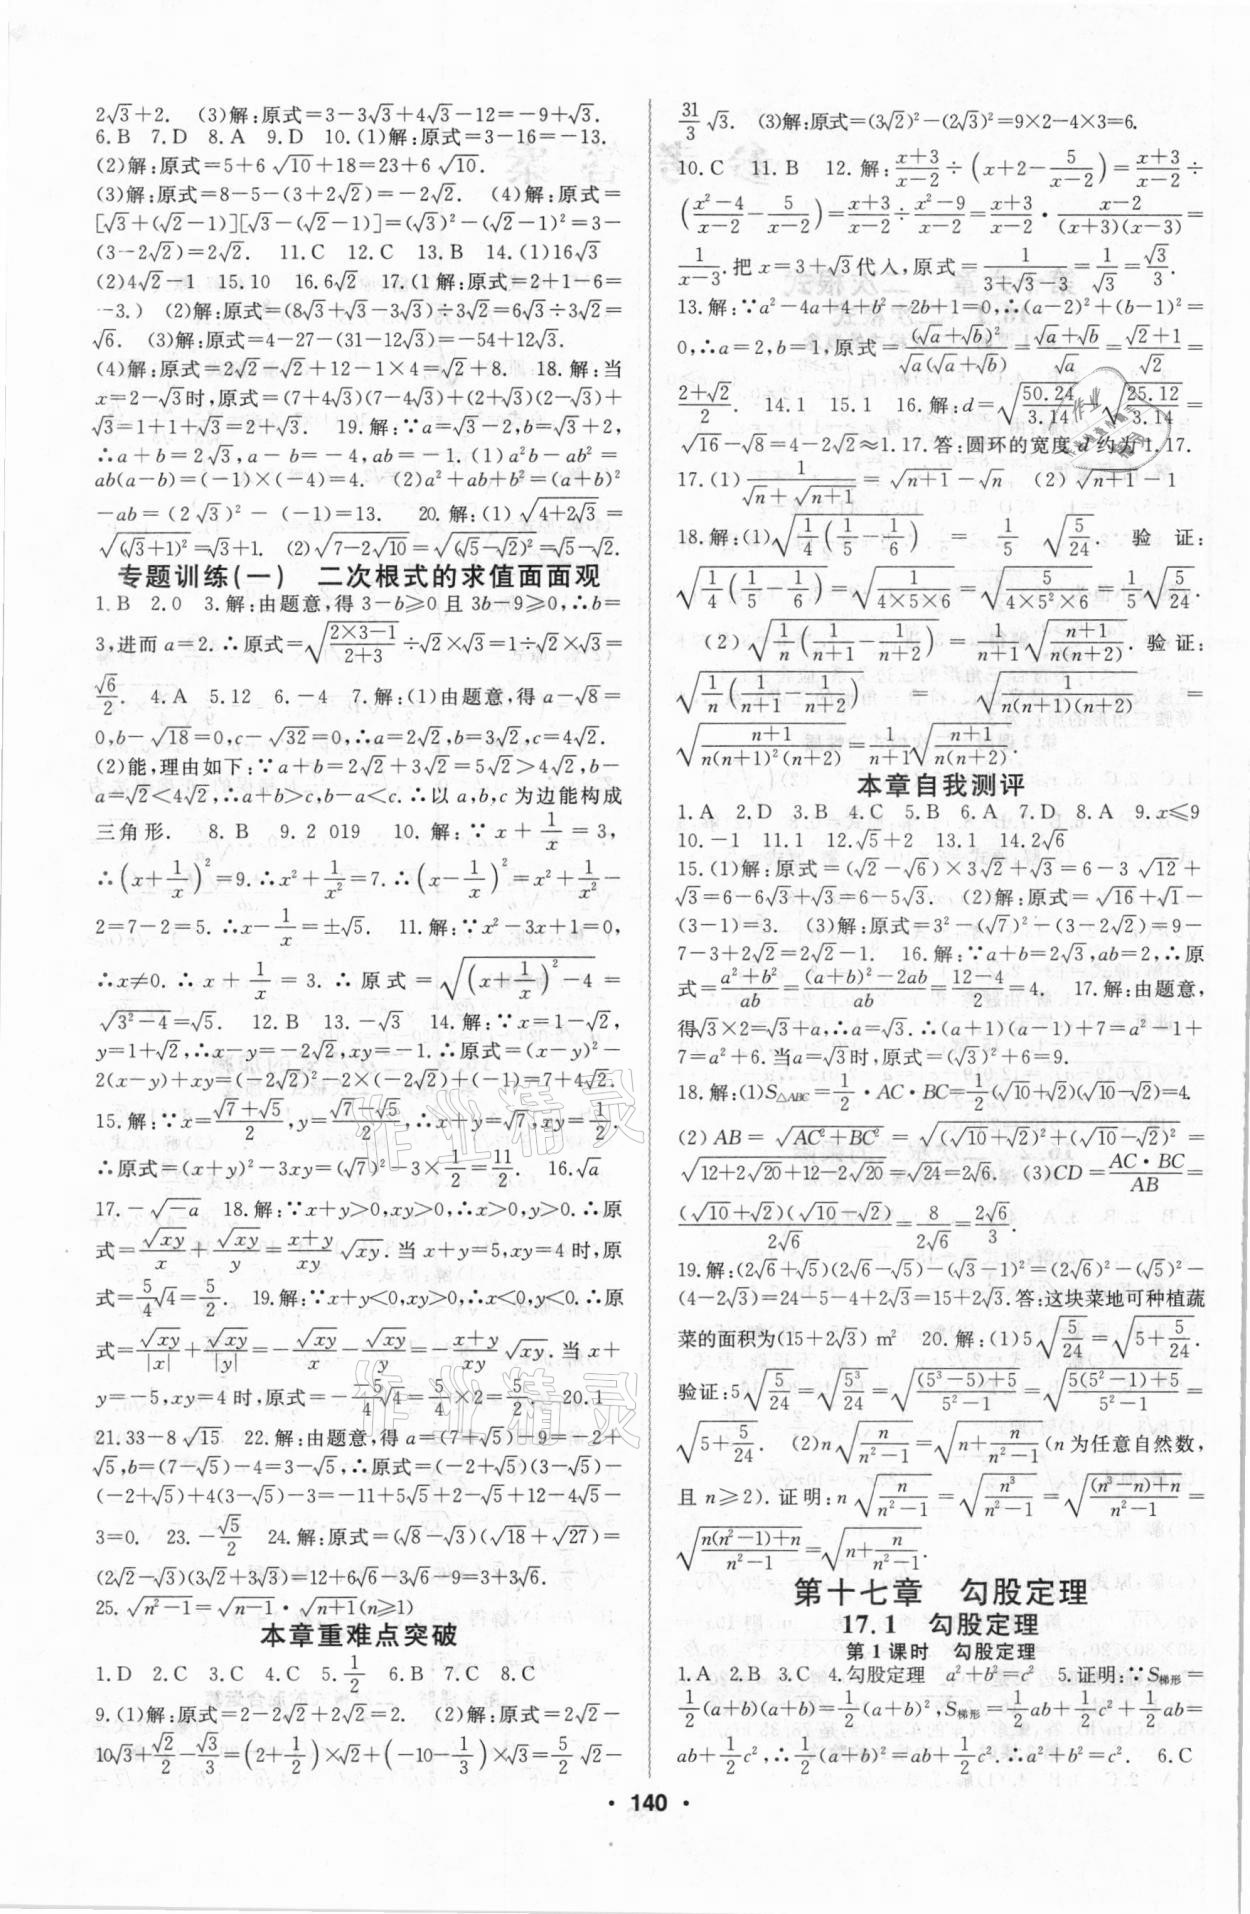 2√3+2. (3)解:原式=3-3√3+4√3-12=-9+√3.
6.B 7.D 8.A 9.D 10.(1)解:原式=3-16=-13.
(2)解:原式=5+6√10+18=23+6√10.
(3)解:原式=8-5-(3+2√2)=-2√2. (4)解:原式=
[√3+(√2-1)][√3-(√2-1)]=(√3)²-(√2-1)²=3-
(3-2√2)=2√2. 11.C 12.C 13.B 14.(1)16√3
(2)4√2-1 15.10 16.6√2 17.(1解:原式=2+1-6=
-3.) (2)解:原式=(8√3+√3-3√3)÷3√2=6√3÷3√2=
√6. (3)解:原式=4-27-(31-12√3)=-54+12√3.
(4)解:原式=2√2-√2+12-1×4=√2+8. 18.解:当
x=2-√3时,原式=(7+4√3)(7-4√3)+(2+√3)(2-√3)+
√3=1+1+√3=2+√3. 19.解:∵a=√3-2,b=√3+2,
∴a+b=2√3,a-b=-4,ab=-1.(1)a²b-ab²=
ab(a-b)=(-1)×(-4)=4. (2)a²+ab+b²=(a+b)²
-ab=(2√3)²-(-1)=13. 20.解:(1)√(4+2√3)=
√((√3+1)²)=√3+1. (2)√(7-2√10)=√((√5-√2)²)=√5-√2.
专题训练(一) 二次根式的求值面面观
1.B 2.0 3.解:由题意,得3-b≥0且3b-9≥0,∴b=
3,进而a=2.∴原式=√((2×3-1)/(2+3))÷√2×√3=1÷√2×√3=
√6/2. 4.A 5.12 6.-4 7.解:(1)由题意,得a-√8=
0,b-√18=0,c-√32=0,∴a=2√2,b=3√2,c=4√2.
(2)能,理由如下:∵a+b=2√2+3√2=5√2>4√2,b-
a=√2<4√2,∴a+b>c,b-a<c.∴以a,b,c为边能构成
三角形. 8.B 9.2 019 10.解:∵x+1/x=3,
∴(x+1/x)²=9.∴x²+1/x²=7.∴(x-1/x)²=x²+1/x²-
2=7-2=5.∴x-1/x=±√5. 11.解:∵x²-3x+1=0,
∴x≠0.∴x+1/x=3.∴原式=√((x+1/x)²-4)=
√(3²-4)=√5. 12.B 13.-√3 14.解:∵x=1-√2,
y=1+√2,∴x-y=-2√2,xy=-1.∴原式=(x-y)²-
2(x-y)+xy=(-2√2)²-2×(-2√2)+(-1)=7+4√2.
15.解:∵x=(√7+√5)/2,y=(√7-√5)/2,∴x+y=√7,xy=1/2.
∴原式=(x+y)²-3xy=(√7)²-3×1/2=11/2. 16.√a
17.-√(-a) 18.解:∵x+y>0,xy>0,∴x>0,y>0.∴原
式=√xy/x+√xy/y=(x+y)/xy √xy.当x+y=5,xy=4时,原
式=5/4√4=5/2. 19.解:∵x+y<0,xy>0,∴x<0,y<0.∴原
式=√xy/|x|+√xy/|y|=-√xy/x-√xy/y=-(x+y)/xy √xy.当x+
y=-5,xy=4时,原式=-(-5/4)√4=5/4×2=5/2. 20.1
21.33-8√15 22.解:由题意,得a=(7+√5)-9=-2+
√5,b=(7-√5)-4=3-√5,∴原式=(-2+√5)(3-√5)-
(-2+√5)+4(3-√5)-3=-11+5√5+2-√5+12-4√5-
3=0. 23.-√5/2 24.解:原式=(√8-√3)(√18+√27)=
(2√2-√3)(3√2+3√3)=12+6√6-3√6-9=3+3√6.
25.√(n²-1)=√(n-1)·√(n+1)(n≥1)
本章重难点突破
1.D 2.C 3.C 4.C 5.1/2 6.B 7.C 8.C
9.(1)解:原式=2-2√2+2√2=2. (2)解:原式=2√2-
10√3+√2/2-√3/3=(2+1/2)×√2+(-10-1/3)×√3=5/2√2-
31/3√3. (3)解:原式=(3√2)²-(2√3)²=9×2-4×3=6.
10.C 11.B 12.解:(x+3)/(x-2)÷(x+2-5/(x-2))=(x+3)/(x-2)÷
((x²-4)/(x-2)-5/(x-2))=(x+3)/(x-2)÷(x²-9)/(x-2)=(x+3)/(x-2)·(x-2)/((x+3)(x-3))=
1/(x-3).把x=3+√3代人,原式=1/(3+√3-3)=1/√3=√3/3.
13.解:∵a²-4a+4+b²-2b+1=0,∴(a-2)²+(b-1)²=
0,∴a=2,b=1,原式=(√a+√b)²/(√a(√a+√b))=(√a+√b)/√a=(√2+1)/√2=
(2+√2)/2. 14.1 15.1 16.解:d=√(50.24/3.14)-√(25.12/3.14)=
√16-√8=4-2√2≈1.17.答:圆环的宽度d约为1.17.
17.(1)1/(√n+√(n+1))=√(n+1)-√n (2)√(n+1)-1
18.解:(1)√(1/4(1/5-1/6))=1/5√(5/24). 验证:
√(1/4(1/5-1/6))=√(1/(4×5×6))=√(5/(4×5²×6))=1/5√(5/24).
(2)√(1/n(1/(n+1)-1/(n+2)))=1/(n+1)√((n+1)/(n(n+2))).验证:
√(1/n(1/(n+1)-1/(n+2)))=√(1/(n(n+1)(n+2)))=
√((n+1)/(n(n+1)²(n+2)))=1/(n+1)√((n+1)/(n(n+2))).
本章自我测评
1.A 2.D 3.B 4.C 5.B 6.A 7.D 8.A 9.x≤9
10.-1 11.1 12.√5+2 13.1 14.2√6
15.(1)解:原式=(√2-√6)×3√2+√3=6-3√12+
√3=6-6√3+√3=6-5√3. (2)解:原式=√16+√1-
(3-1)=3. (3)解:原式=3²-(√7)²-(3-2√2)=9-
7-3+2√2=2√2-1. 16.解:∵a+b=2√3,ab=2,∴原
式=(a²+b²)/ab=((a+b)²-2ab)/ab=(12-4)/2=4. 17.解:由题意,
得√3×2=√3+a,∴a=√3.∴(a+1)(a-1)+7=a²-1+
7=a²+6.当a=√3时,原式=(√3)²+6=9.
18.解:(1)S△ABC=1/2·AC·BC=1/2(√10+√2)(√10-√2)=4.
(2)AB=√(AC²+BC²)=√((√10+√2)²+(√10-√2)²)=
√(12+2√20+12-2√20)=√24=2√6. (3)CD=AC·BC/AB=
(√10+√2)(√10-√2)/2√6=8/2√6=2√6/3.
19.解:(2√6+√5)(2√6-√5)-(√3-1)²=(2√6)²-(√5)²-
(4-2√3)=24-5-4+2√3=15+2√3.答:这块菜地可种植蔬
菜的面积为(15+2√3) m² 20.解:(1)5√(5/24)=√(5+5/24).
验证:5√(5/24)=√(5³/24)=√(((5³-5)+5)/(5²-1))=√((5(5²-1)+5)/(5²-1))=
√(5+5/24). (2)n√(n/(n²-1))=√(n+n/(n²-1))(n为任意自然数,
且n≥2).证明:n√(n/(n²-1))=√(n³/(n²-1))=√(((n³-n)+n)/(n²-1))=
√((n(n²-1)+n)/(n²-1))=√(n+n/(n²-1)).
第十七章 勾股定理
17.1 勾股定理
第1课时 勾股定理
1.A 2.B 3.C 4.勾股定理 a²+b²=c² 5.证明:∵S梯形=
1/2(a+b)(a+b)=1/2(a+b)²,S梯形=1/2ab+1/2c²+1/2ab=
ab+1/2c²,∴1/2(a+b)²=ab+1/2c².∴a²+b²=c². 6.C
· 140 ·
作业精灵
作业精灵